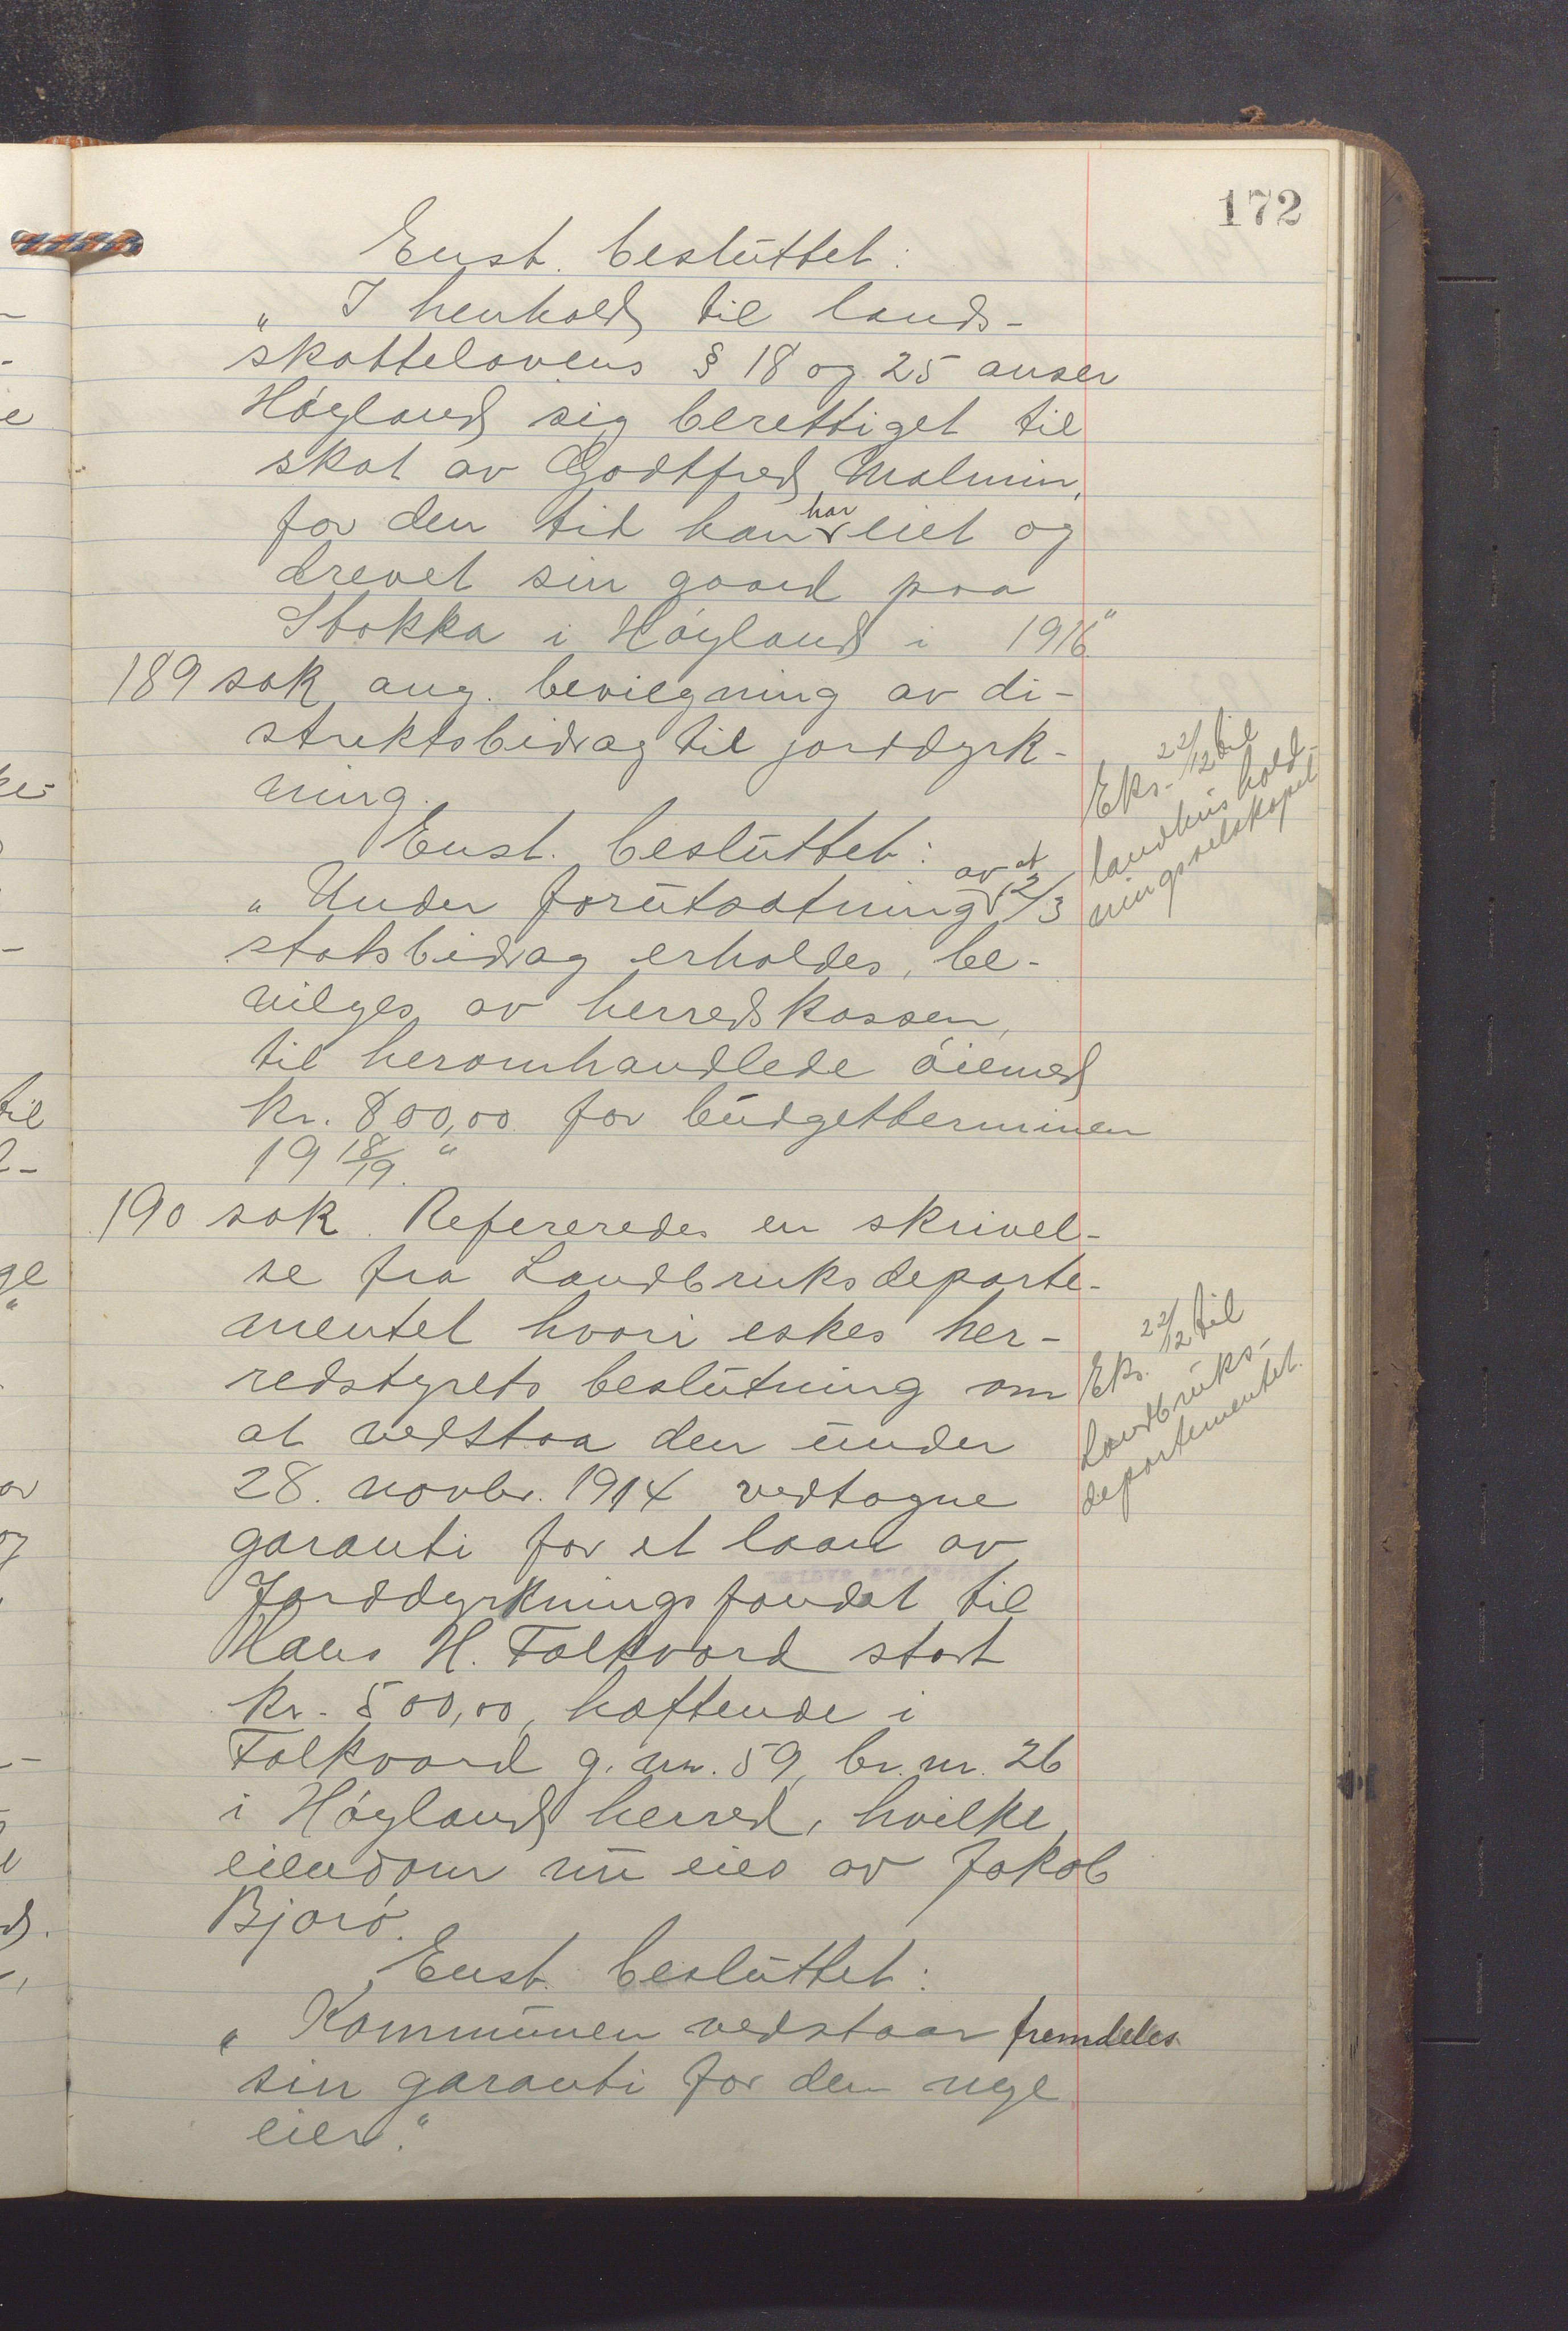 172
Enst. besluttet:
„I henhold til lands-
skattelovens § 18 og 25 anser
Høyland sig berettiget til
skat av Godtfred Malmin,
for den tid han har eiet og
drevet sin gaard paa
Stokka i Høyland i 1916"
189 sak ang. bevilgning av di-
striktsbidrag til jorddyrk-
ning.
Eks. 22/12 til
landhushold-
ningsselskapet
Enst. besluttet:
„Under forutsætning av at 2/3
statsbidrag erholdes, be-
vilges av herredskassen,
til heromhandlede øiemed
kr. 800,00 for budgetterminen
19 18/19."
190 sak. Refereredes en skrivel-
se fra Landbruksdeparte-
mentet hvori eskes her-
redstyrets beslutning om
at vedstaa den under
28. novbr. 1914 vedtagne
Eks. 22/12 til
Landbruks-
departementet.
garanti for et laan av
Jorddyrkningsfondet til
Hans H. Folkvord stort
kr. 500,00, hæftende i
Folkvord g. nr. 59, br. nr. 26
i Høyland herred, hvilke
eiendom nu eies av Jakob
Bjorø.
Enst. besluttet:
„Kommunen vedstaar fremdeles
sin garanti for den nye
eier."